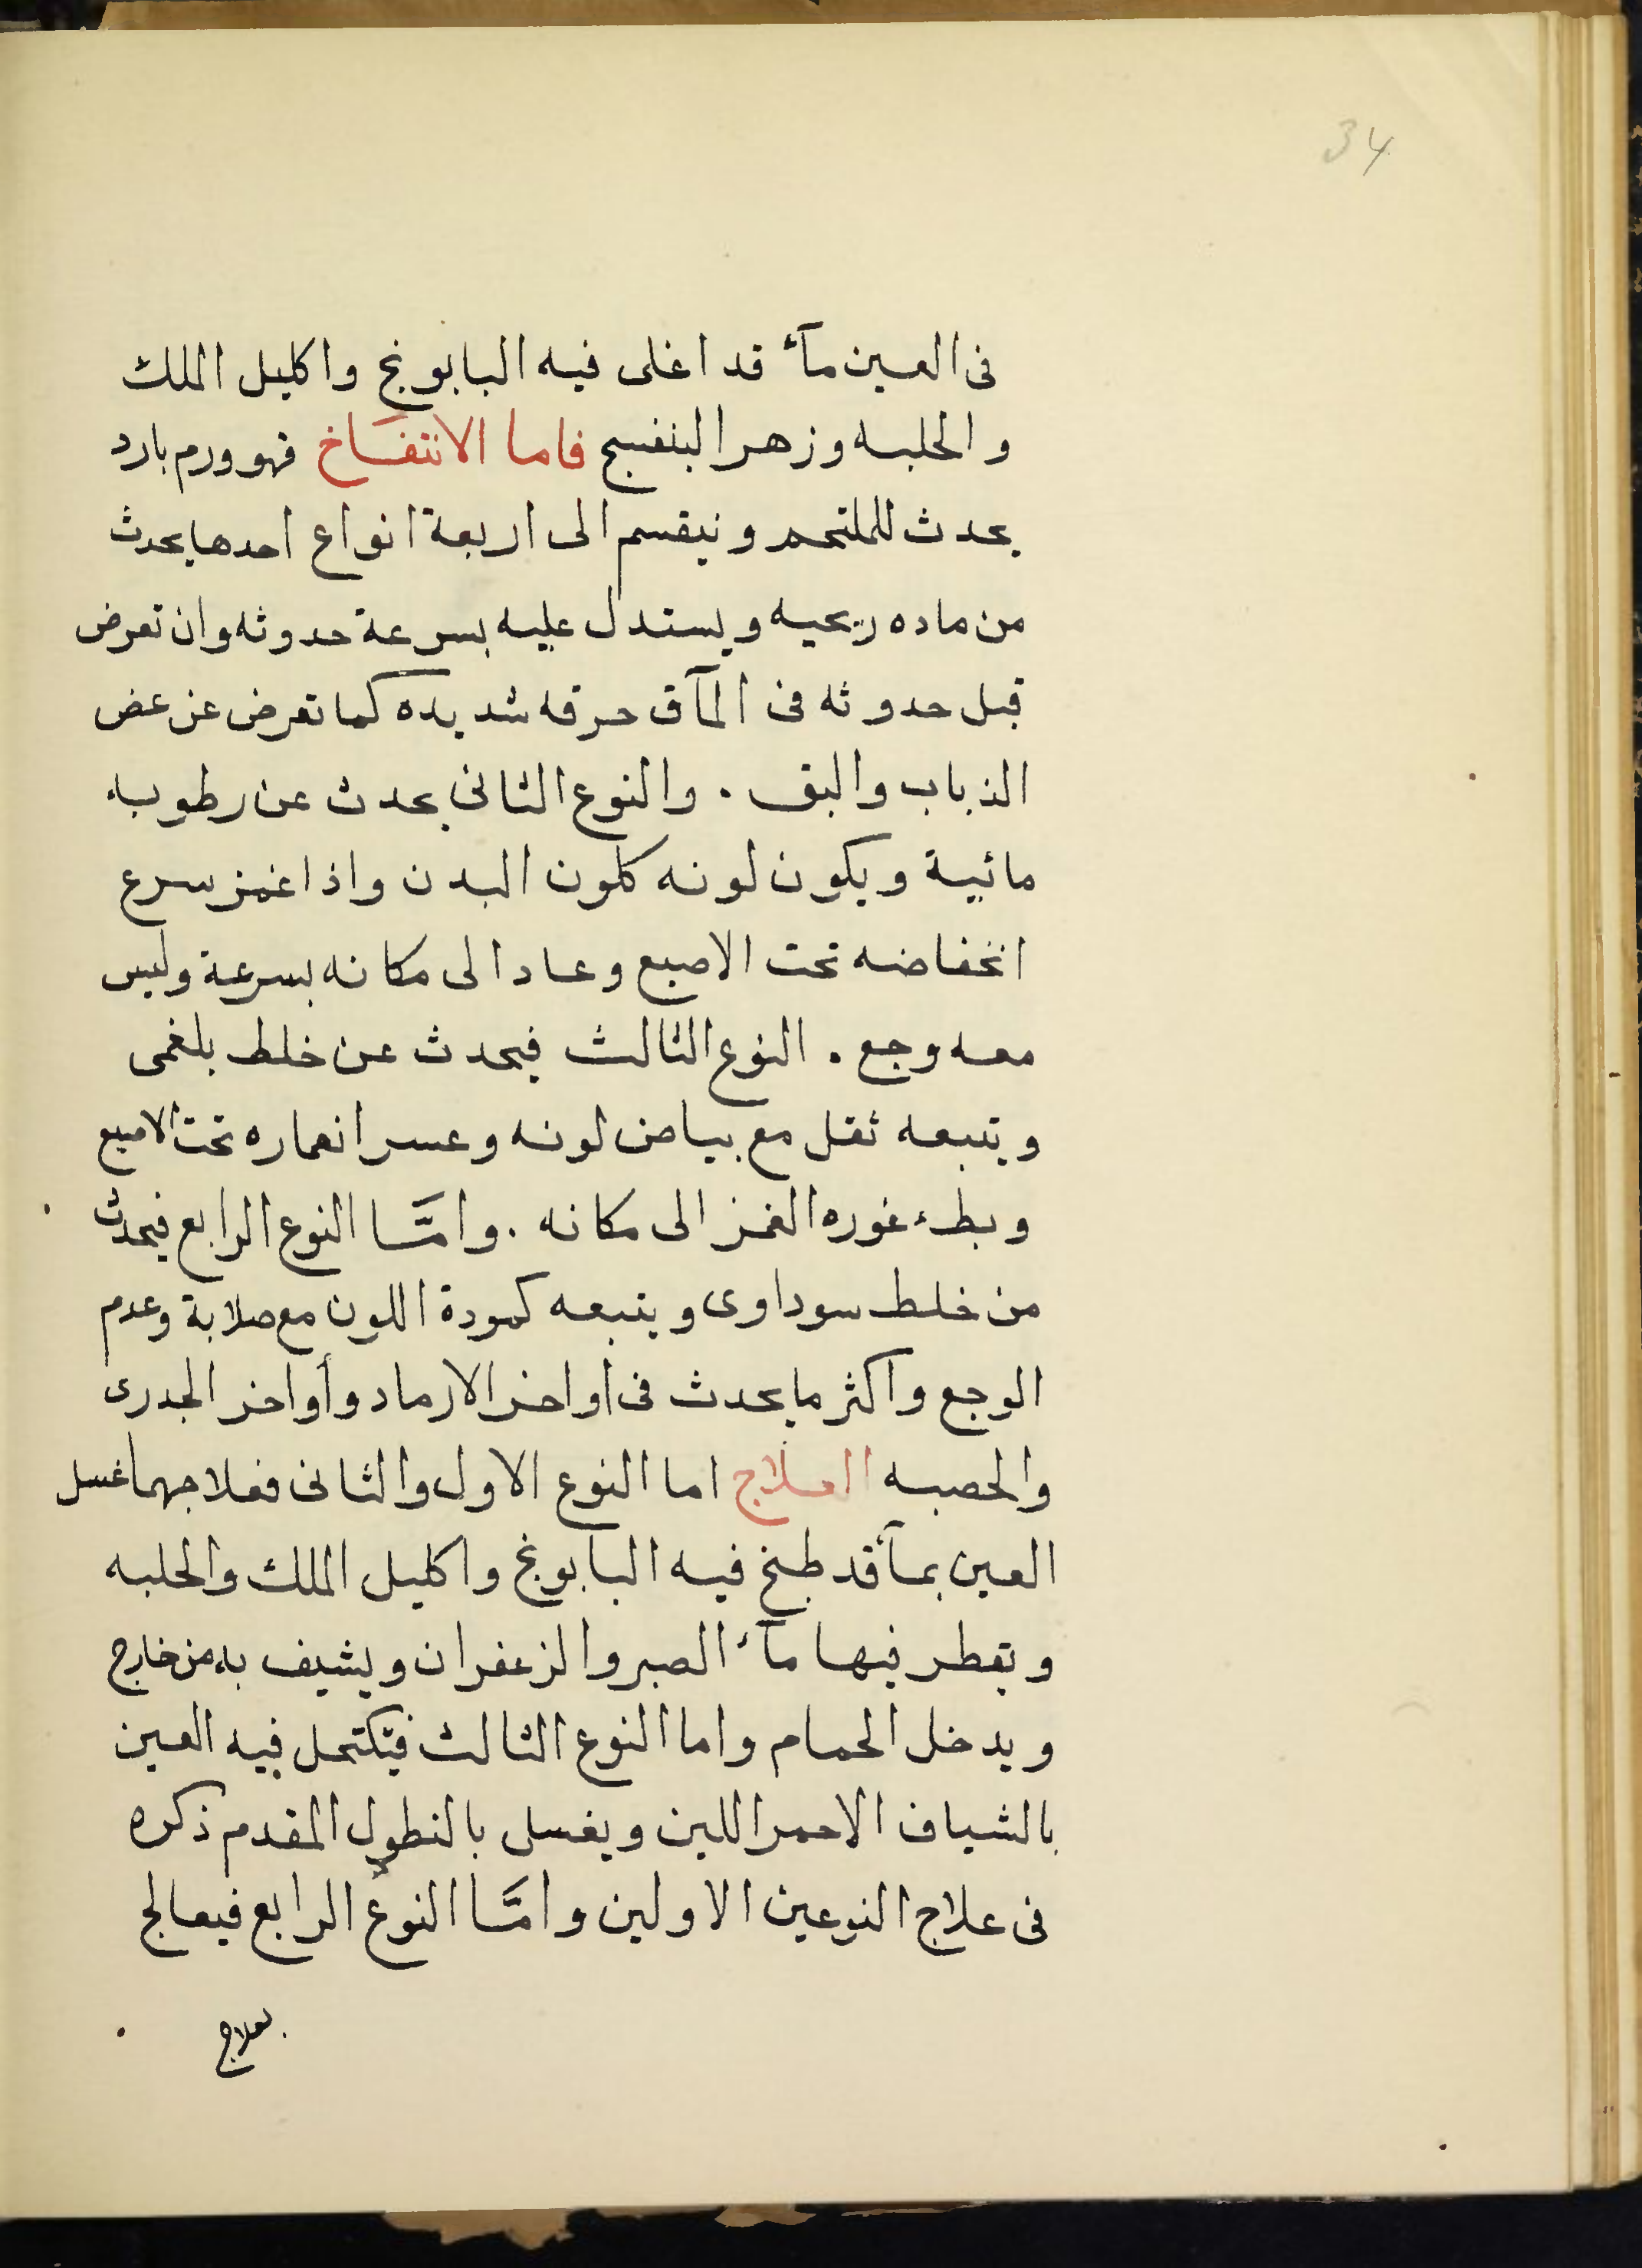 34
فى العين مآء قد اغلى فيه البابونج واكليل الملك
والحلبه وزهر البنفسج فاما الانتفاخ فهو ورم بارد
يحدث للملتحم وينقسم الى اربعة انواع احدها يحدث
من ماده ريحيه ويستدل عليه بسرعة حدوثه وان تعرض
قبل حدوثه فى المآق حرقه شديده كما تعرض عن عض
الذباب والبق . والنوع الثانى يحدث عن رطوبه
مائية ويكون لونه كلون البدن واذا غمز سرع
انخفاضه تحت الاصبع وعاد الى مكانه بسرعة وليس
معه وجع . النوع الثالث فيحدث عن خلط بلغمى
ويتبعه ثقل مع بياض لونه وعسر انعماره تحت الاصبع
وبطء غوره الغمز الى مكانه . وامَّا النوع الرابع فيحدث
من خلط سوداوى ويتبعه كمودة اللون مع صلابة وعدم
الوجع واكثر ما يحدث فى اواخر الارماد وأواخر الجدرى
والحصبه العلاج اما النوع الاول والثانى فعلاجهما غسل
العين بمآ قد طبخ فيه البابونج واكليل الملك والحلبه
ويقطر فيها مآء الصبر والزعفران ويشيف به من خارج
ويدخل الحمام واما النوع الثالث فيكتحل فيه العين
بالشياف الاحمر اللين ويغسل بالنطول المقدم ذكره
فى علاج النوعين الاولين وامَّا النوع الرابع فيعالج
بعلاج